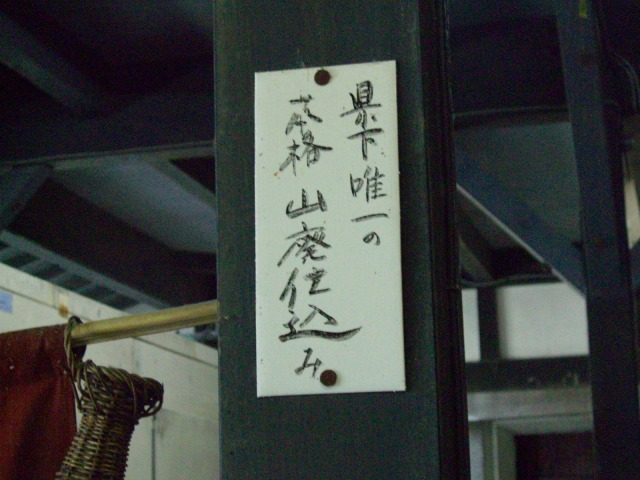 県下唯一の
本格山廃仕込み